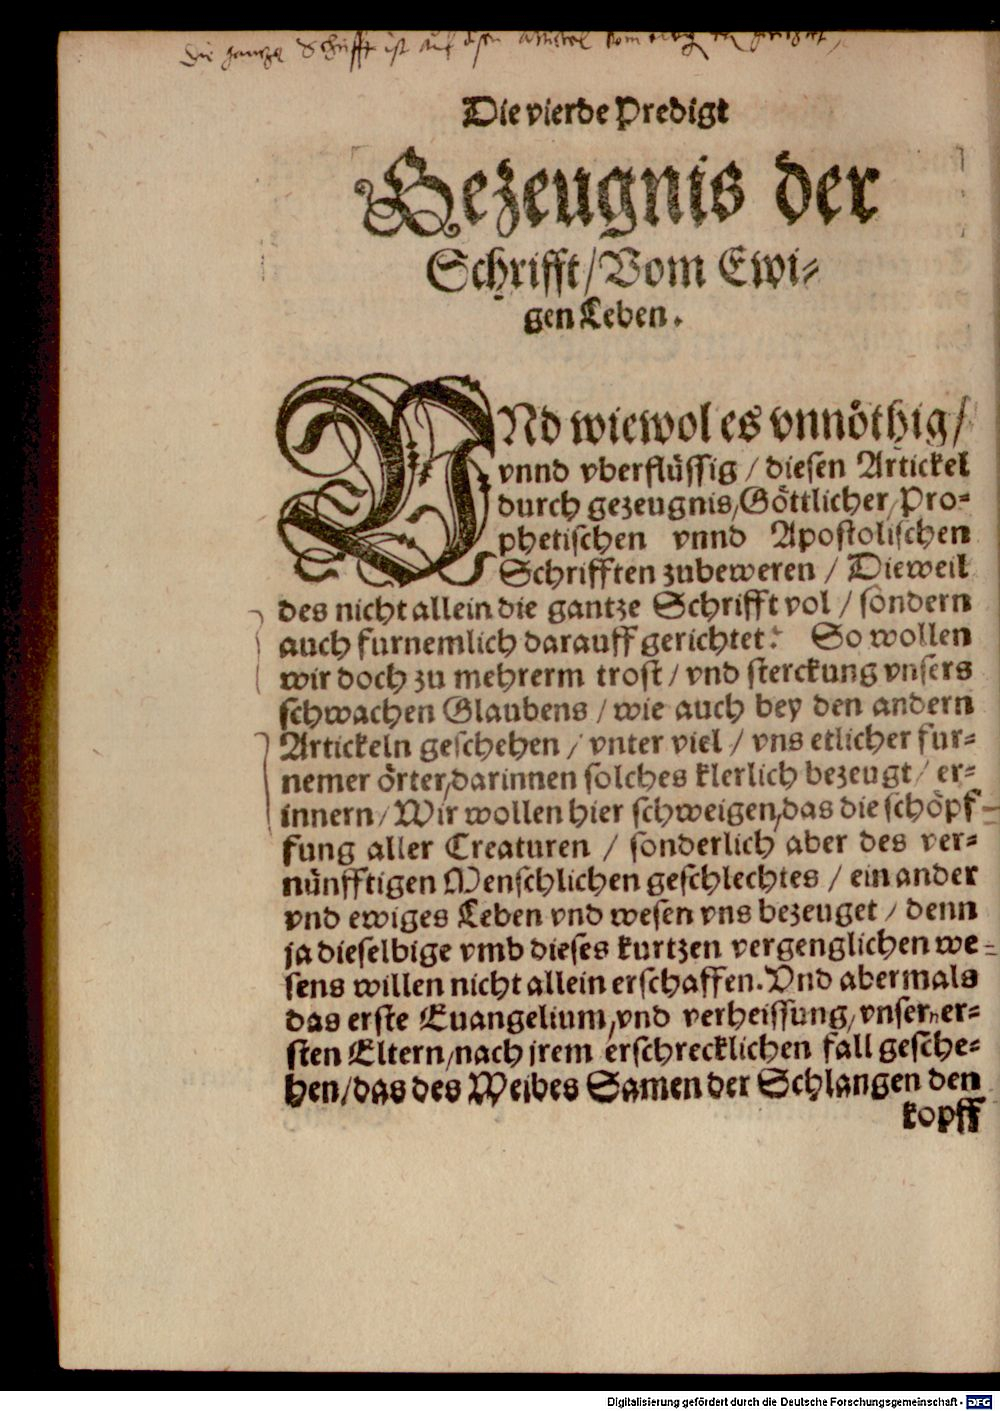 Die gantze Schrifft ist auf disen
Die vierde Predigt
Gezeugnis der
Schrifft/Vom Ewi-
gen Leben.
VNd wiewol es vnnöthig/
vnnd vberflüssig / diesen Artickel
durch gezeugnis/Göttlicher/Pro-
phetischen vnnd Apostolischen
Schrifften zubeweren / Dieweil
des nicht allein die gantze Schrifft vol / sondern
auch furnemlich darauff gerichtet: So wollen
wir doch zu mehrerm trost / vnd sterckung vnsers
schwachen Glaubens / wie auch bey den andern
Artickeln geschehen / vnter viel / vns etlicher fur-
nemer örter/darinnen solches klerlich bezeugt / er-
innern / Wir wollen hier schweigen/das die schöpf-
fung aller Creaturen / sonderlich aber des ver-
nünfftigen Menschlichen geschlechtes / ein ander
vnd ewiges Leben vnd wesen vns bezeuget / denn
ja dieselbige vmb dieses kurtzen vergenglichen we-
sens willen nicht allein erschaffen. Vnd abermals
das erste Euangelium/vnd verheissung/vnsern er-
sten Eltern/nach jrem erschrecklichen fall gesche-
hen/das des Weibes Samen der Schlangen den
kopff
Digitalisierung gefördert durch die Deutsche Forschungsgemeinschaft - DFG